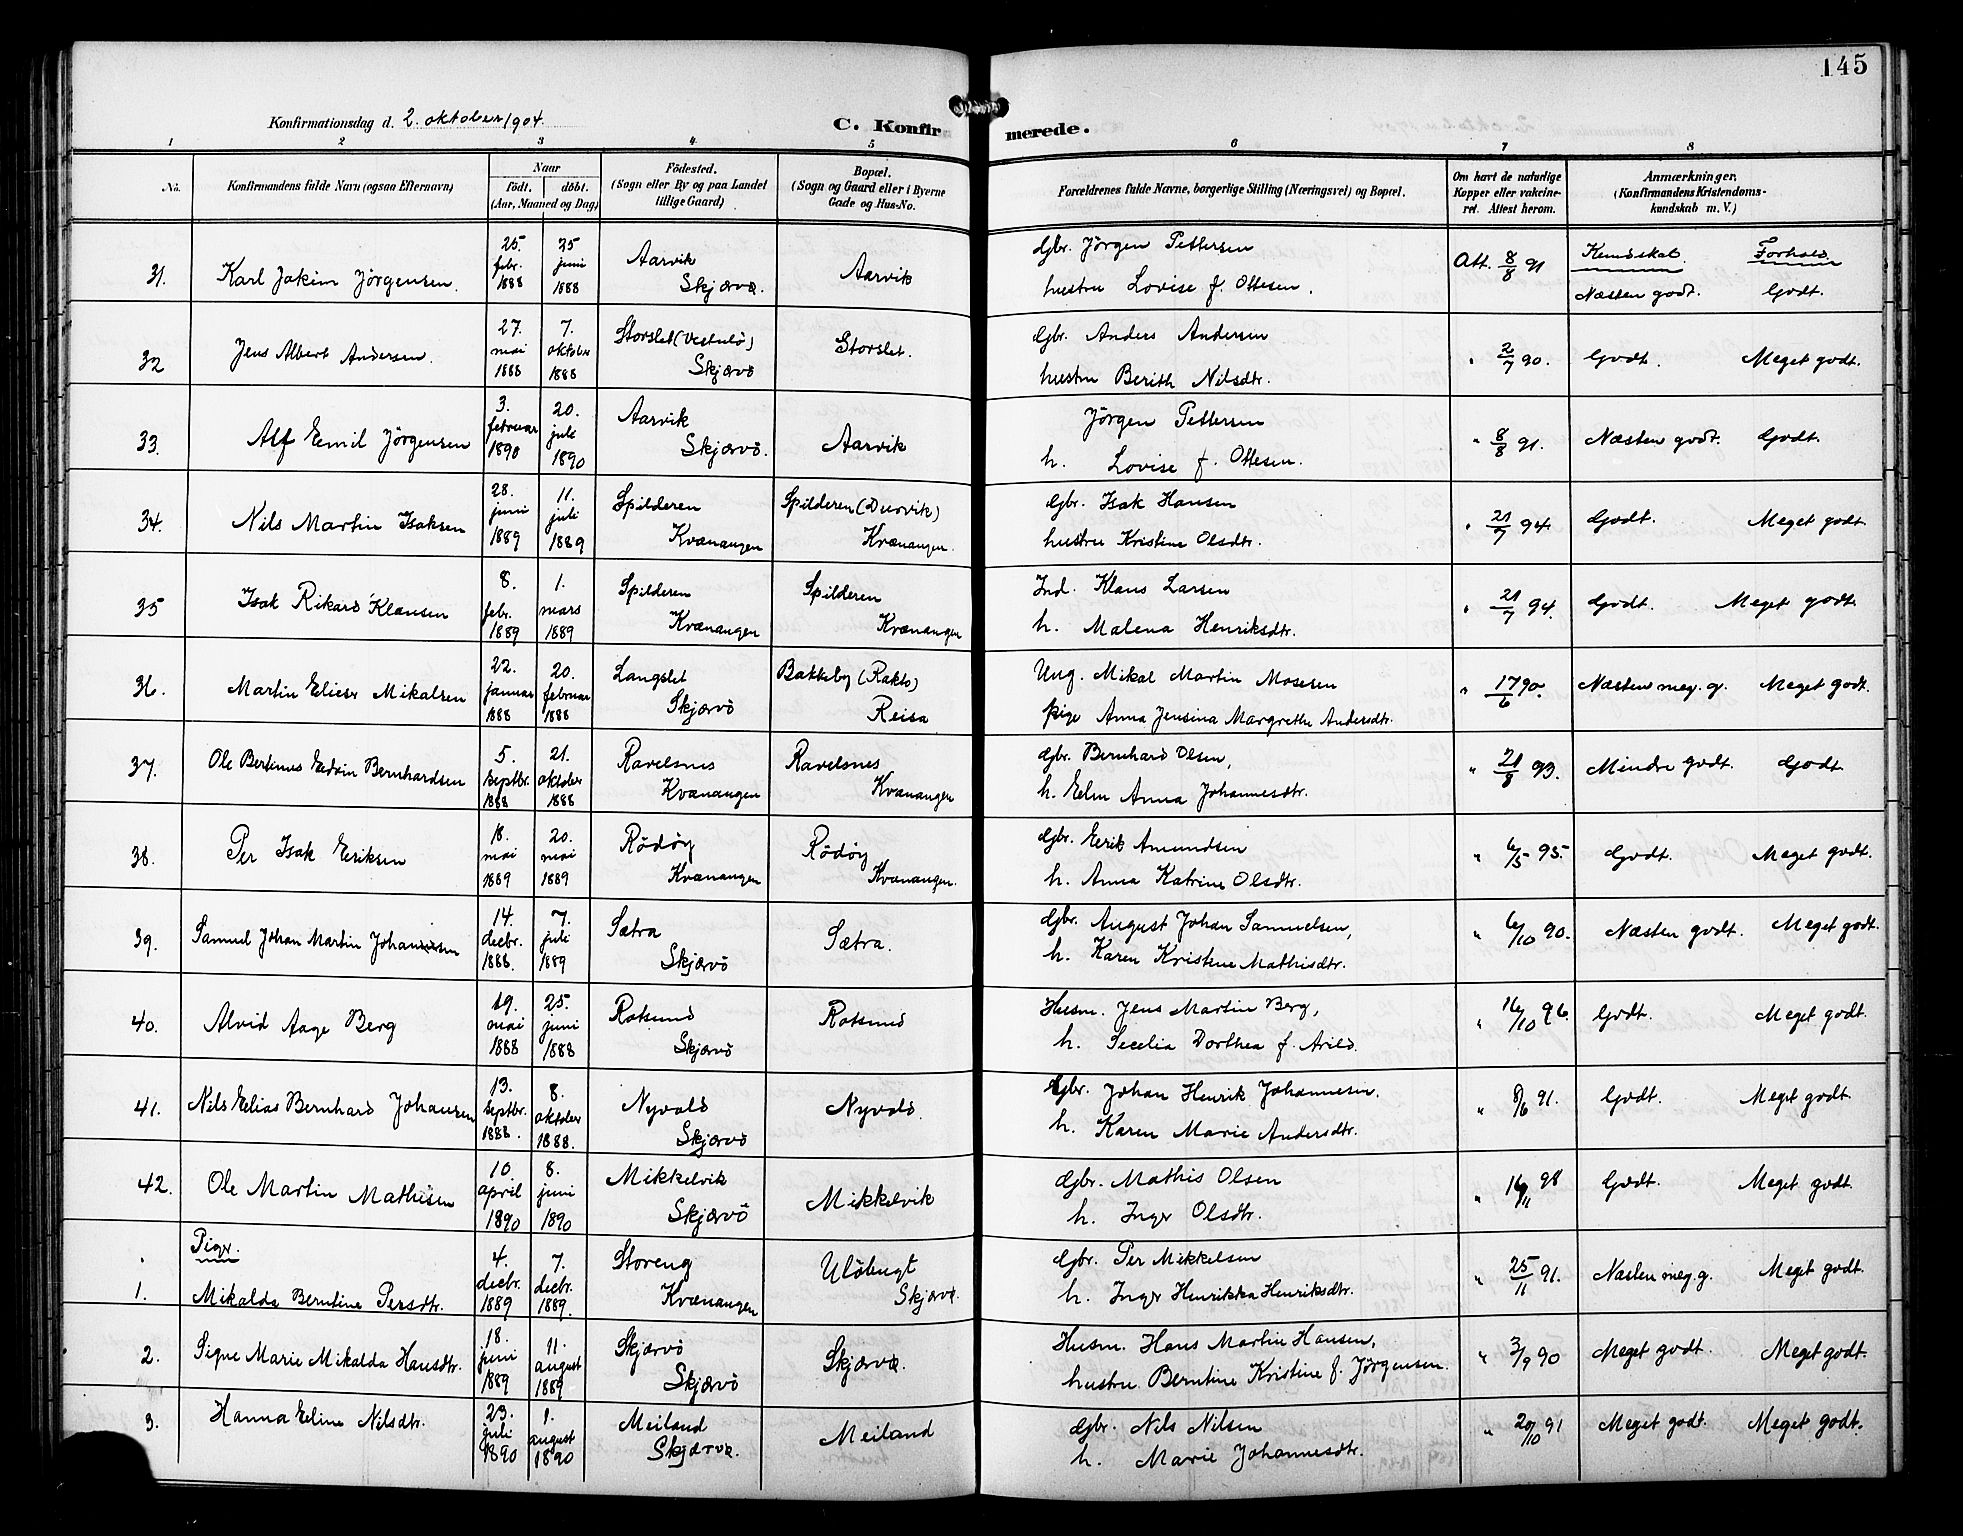 145
Konfirmationsdag d. 2. oktober 1904.
C. Konfirmerede.
1 2 3 4 5 6 7 8
No.
Konfirmandens fulde Navn (ogsaa Efternavn)
Naar
födt. döbt.
(Aar, Maaned og Dag)
Födested.
(Sogn eller By og paa Landet
tillige Gaard)
Bopæl.
(Sogn og Gaard eller i Byerne
Gade og Hus-No.
Forældrenes fulde Navne, borgerlige Stilling (Næringsvei) og Bopæl.
Om havt de naturlige
Kopper eller vakcine-
ret. Attest herom.
Anmærkninger.
(Konfirmandens Kristendoms-
kundskab m. V.)
31. Karl Jakim Jörgensen.
25. febr. 1888
25 juni 1888
Aarvik
Skjærvö.
Aarvik
Gbr. Jörgen Pettersen
hustru Lovise f. Ottesen.
Att. 8/8 91
Kundskab. Forhold.
Næsten godt. Godt.
32 Jens Albert Andersen.
27. mai 1888
7. oktober 1888
Storslet (Vestnlö)
Skjærvö
Storslet.
Gbr. Anders Andersen
hustru Berith Nilsdtr.
" 2/7 90.
Godt. Meget godt.
33. Alf Emil Jörgensen
3. februar 1890
20. juli 1890
Aarvik
Skjærvö.
Aarvik
Jörgen Pettersen
h. Lovise f. Ottesen.
" 8/8 91.
Næsten godt. Godt.
34. Nils Martin Isaksen
28. juni 1889
11. juli 1889
Spilderen
Kvænangen
Spilderen (Dunvik)
Kvænangen.
Gbr. Isak Hansen
hustru Kristine Olsdtr.
" 21/7 94.
Godt. Meget godt
35 Isak Rikard Klausen
8. febr. 1889
1. mars 1889
Spilderen
Kvænangen
Spilderen
Kvænangen
Ind. Klaus Larsen
h. Malena Henriksdtr.
" 21/7 94.
Godt. Meget godt.
36. Martin Elieser Mikalsen
22. januar 1888
20. februar 1888
Langslet
Skjærvö
Bakkeby (Rakto)
Reisa
Ung. Mikal Martin Mosesen
pige Anna Jensina Margrethe Andersdtr.
" 17/6 90.
Næsten meg. g. Meget godt.
37. Ole Bertinus Edvin Bernhardsen
5. septbr. 1888
21. oktober 1888
Ravelsnes
Kvænangen
Ravelsnes
Kvænangen
Gbr. Bernhard Olsen,
h. Elen Anna Johannesdtr.
" 21/8 93.
Mindre godt. Godt.
38. Per Isak Eriksen
18. mai 1889
20. mai 1889
Rödöy
Kvænangen
Rödöy
Kvænangen.
Gbr. Erik Amundsen
h. Anna Katrine Olsdtr.
" 6/5 95.
Godt. Meget godt.
39. Samuel Johan Martin Johansen
14. decbr. 1888.
7. juli 1889
Sætra
Skjærvö
Sætra.
Gbr. August Johan Samuelsen,
h. Karen Kristine Mathisdtr.
" 6/10 90.
Næsten godt. Meget godt.
40. Alvid Aage Berg
19. mai 1888
25. juni 1888
Rotsund
Skjærvö
Rotsund
Husm. Jens Martin Berg,
h. Secelia Dorthea f. Arild.
" 16/10 96.
Godt. Meget godt.
41. Nils Elias Bernhard Johansen
13. septbr. 1888.
8. oktober 1888.
Nyvold
Skjærvö
Nyvold.
Gbr. Johan Henrik Johannesen.
h. Karen Marie Andersdtr.
" 8/6 91.
Godt. Meget godt.
42. Ole Martin Mathisen
10. april 1890
8. juni 1890
Mikkelvik
Skjærvö
Mikkelvik
Gbr. Mathis Olsen
h. Inger Olsdtr.
" 16/11 98
Godt. Meget godt.
Piger.
1. Mikalda Berntine Persdtr.
4. decbr. 1889
7. decbr. 1889.
Storeng
Kvænangen
Ulöbugt
Skjærvö.
Gbr. Per Mikkelsen
h. Inger Henrikka Henriksdtr.
" 25/11 91.
Næsten meg. g. Meget godt.
2. Signe Marie Mikalda Hansdtr.
18. juni 1889
11. august 1889
Skjærvö
Skjærvö
Skjærvö.
Husm. Hans Martin Hansen,
hustru Berntine Kristine f. Jörgensen.
" 3/9 90
Meget godt. Meget godt.
3. Hanna Eline Nilsdtr.
23. juli 1890
1. august 1890
Meiland
Skjærvö.
Meiland
Gbr. Nils Nilsen
h. Marie Johannesdtr.
" 20/10 91
Meget godt. Meget godt.